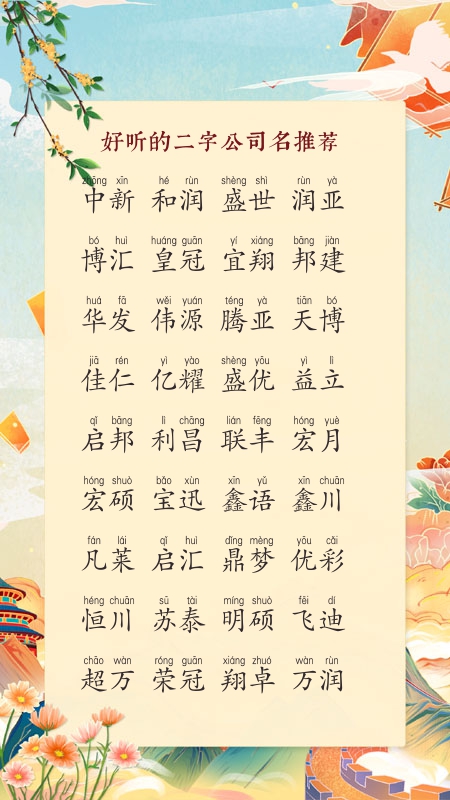 好听的二字公司名推荐
zhōng xīn hé rùn shèng shì rùn yà
中新 和润 盛世 润亚
bó huì huáng guān yí xiáng bāng jiàn
博汇 皇冠 宜翔 邦建
huá fā wěi yuán téng yà tiān bó
华发 伟源 腾亚 天博
jiā rén yì yào shèng yōu yì lì
佳仁 亿耀 盛优 益立
qǐ bāng lì chāng lián fēng hóng yuè
启邦 利昌 联丰 宏月
hóng shuò bǎo xùn xīn yǔ xīn chuān
宏硕 宝迅 鑫语 鑫川
fán lái qǐ huì dǐng mèng yōu cǎi
凡莱 启汇 鼎梦 优彩
héng chuān sū tài míng shuò fēi dí
恒川 苏泰 明硕 飞迪
chāo wàn róng guān xiáng zhuó wàn rùn
超万 荣冠 翔卓 万润